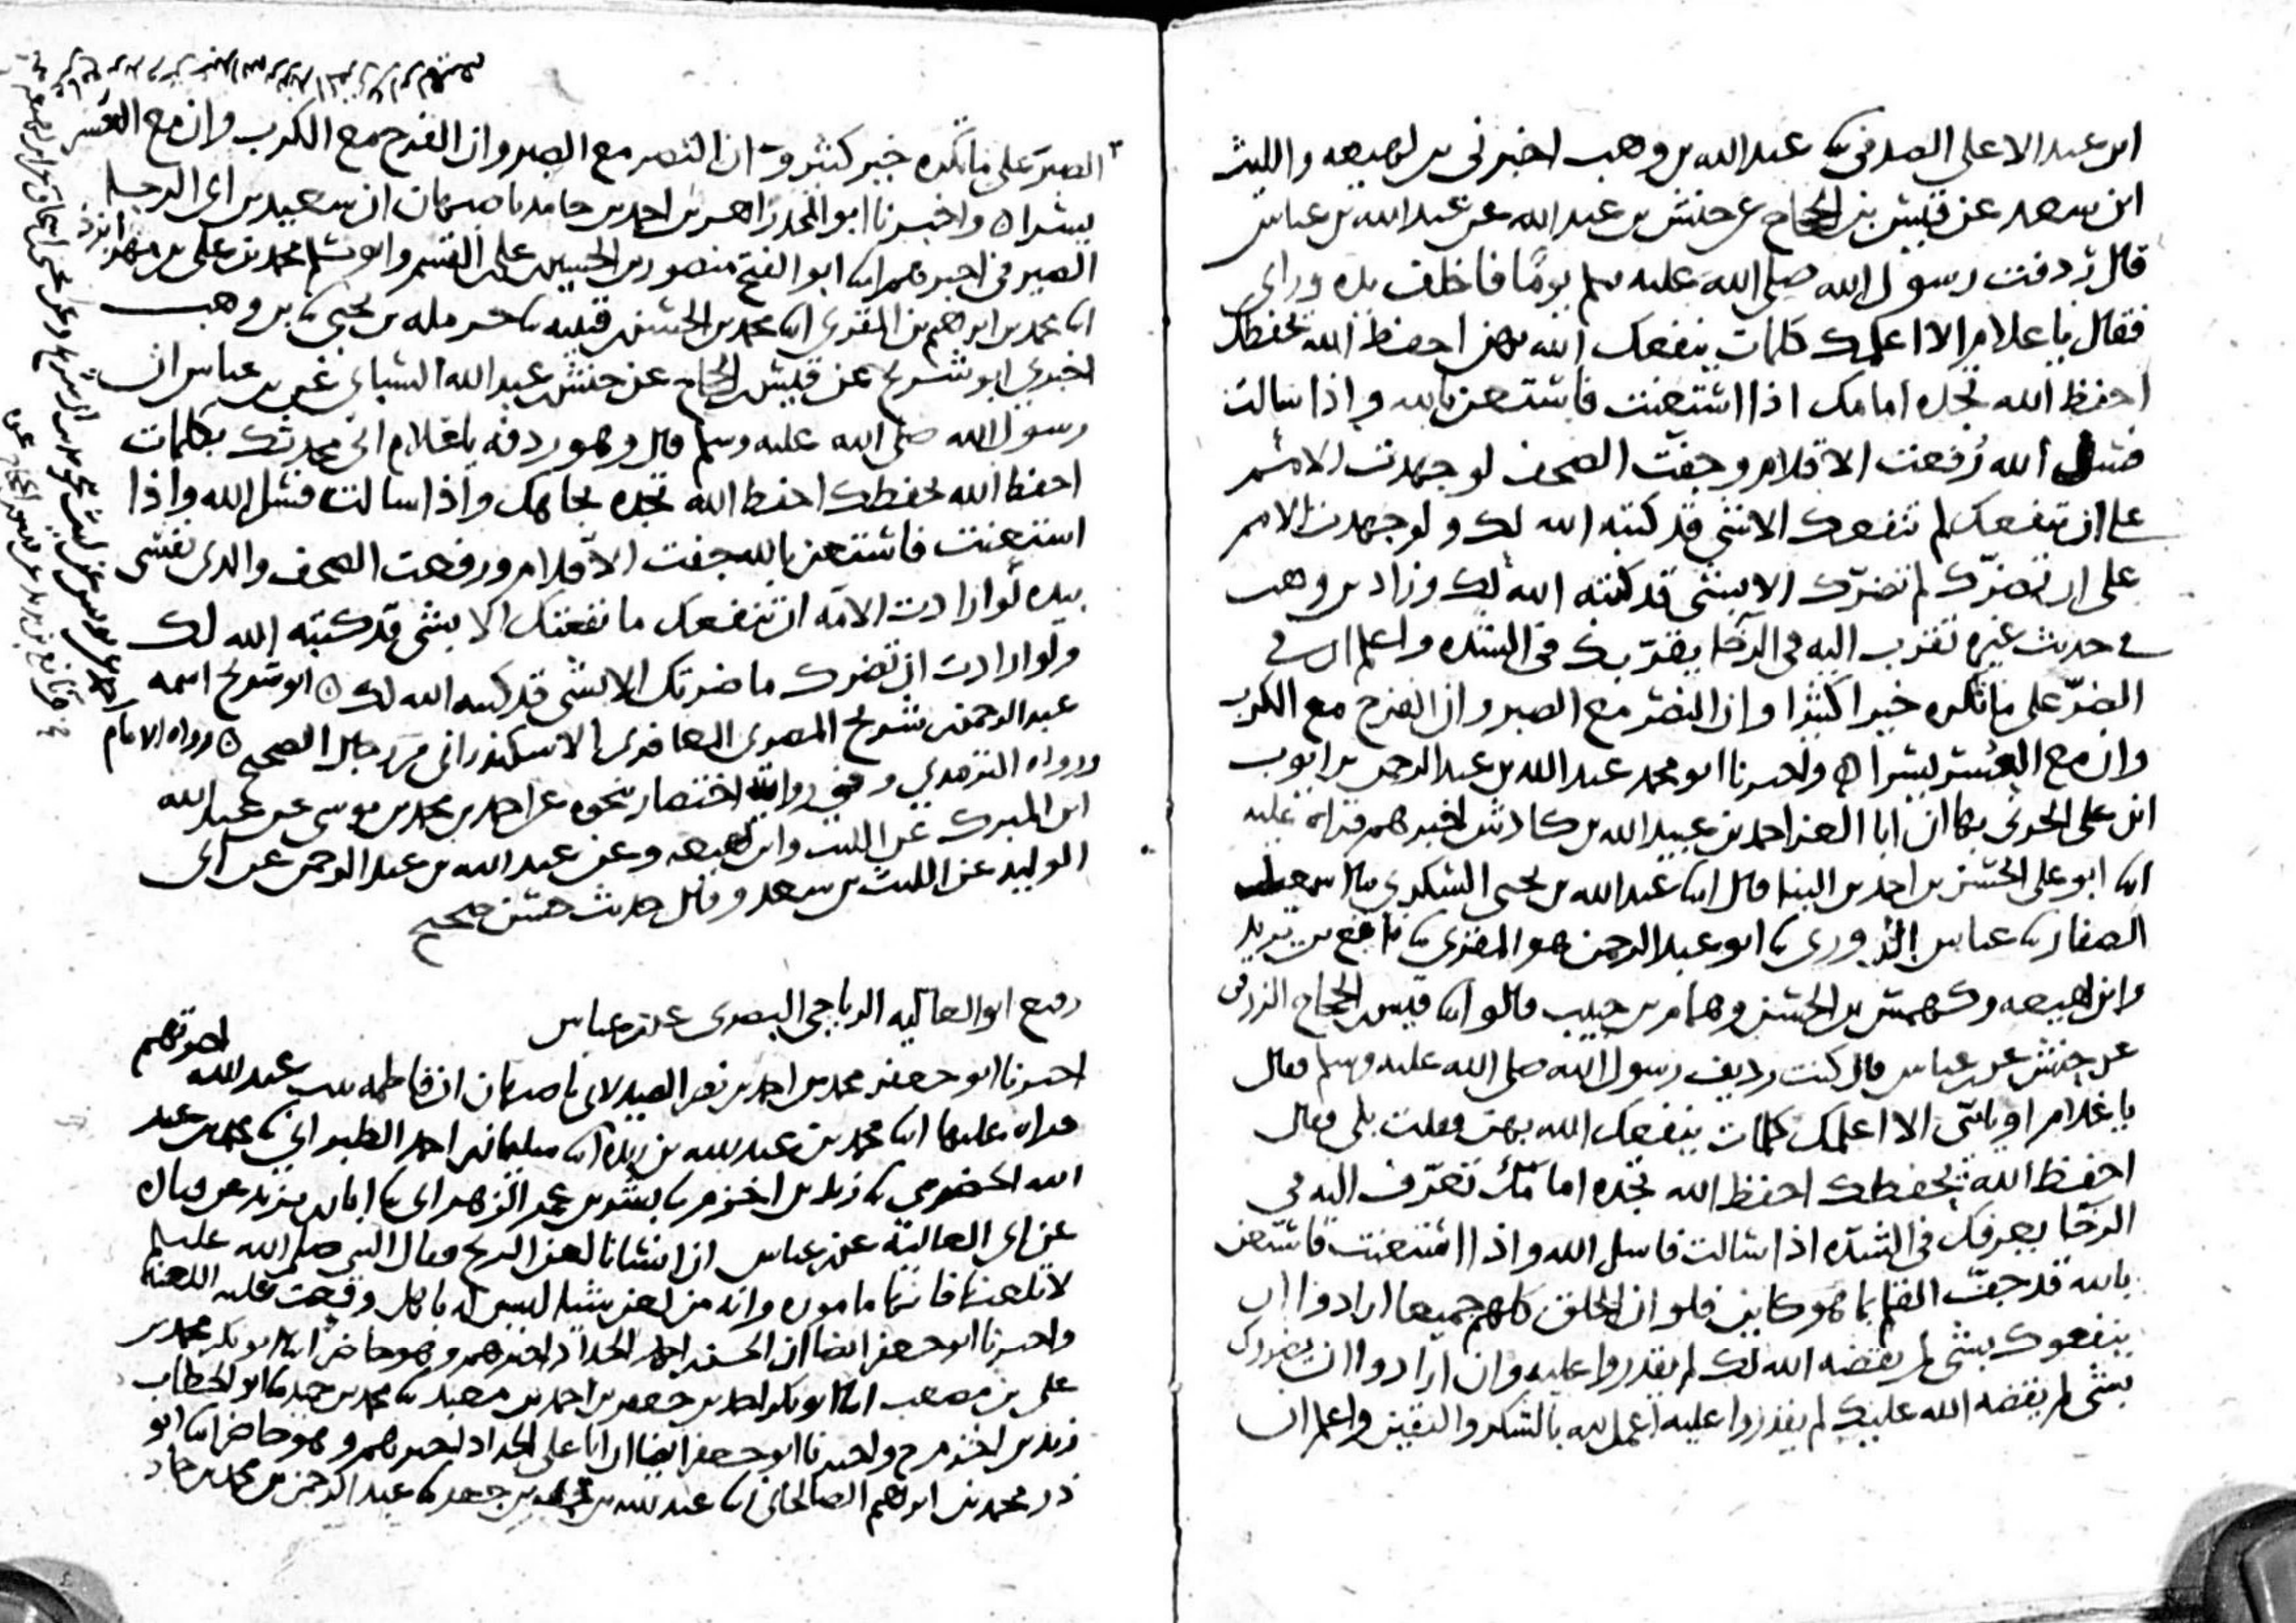 ابن عبد الاعلى الصدفي ثنا عبد الله بن وهب اخبرني بن لهيعه والليث
ابن سعد عن قيس بن الحجاج عن حنش بن عبد الله عن عبد الله بن عباس
قال ردفت رسول الله صلى الله عليه وسلم يوما فاخلف يده وراي
فقال يا غلام الا اعلمك كلمات ينفعك الله بهن احفظ الله يحفظك
احفظ الله تجده امامك اذا استعنت فاستعن بالله واذا سالت
فسل الله رفعت الاقلام وجفت الصحف لو جهدت الامم
على ان تنفعك لم تنفعك الا بشي قد كتبه الله لك ولو جهدت الامم
على ان تضرك لم تضرك الا بشي قد كتبه الله لك وزاد بن وهب
في حديث غيره تقرب اليه في الرخا يقربك في الشده واعلم ان في
الصبر على ما تكره خيرا كثيرا وان النصر مع الصبر وان الفرج مع الكرب
وان مع العسر يسرا ه واخبرنا ابو محمد عبد الله بن عبد الرحمن بن ايوب
ابن علي الحربي بها ان ابا العز احمد بن عبيد الله بن كادش اخبرهم قراه عليه
ابنا ابو علي الحسن بن احمد بن البنا قال ابنا عبد الله بن يحيى السكري ثنا اسمعيل
الصفار ثنا عباس الدوري ثنا ابو عبد الرحمن هو المقري ثنا نافع بن يزيد
وابن لهيعه وكهمس بن الحسن وهمام بن حبيب قالوا ابنا قيس بن الحجاج الزرقي
عن حنش عن بن عباس قال كنت رديف رسول الله صلى الله عليه وسلم فقال
يا غلام او يا بني الا اعلمك كلمات ينفعك الله بهن فقلت بلى فقال
احفظ الله يحفظك احفظ الله تجده امامك تعرف اليه في
الرخا يعرفك في الشده اذا سالت فاسل الله واذا استعنت فاستعن
بالله قد جف القلم بما هو كاين فلو ان الخلق كلهم جميعا ارادوا ان
ينفعوك بشي لم يقضه الله لك لم يقدروا عليه وان ارادوا ان يضروك
بشي لم يقضه الله عليك لم يقدروا عليه اعمل لله بالشكر واليقين واعلم ان
الصبر على ما تكره خير كثير وان النصر مع الصبر وان الفرج مع الكرب وان مع العسر
يسرا ه واخبرنا ابو المجد زاهر بن احمد بن حامد باصبهان ان سعيد بن ابي الرجا
الصيرفي اخبرهم ابنا ابو الفتح منصور بن الحسين بن علي بن القسم وابو مسلم محمد بن علي بن مهرابزد
ابنا محمد بن ابرهيم بن المقري ابنا محمد بن الحسن بن قتيبه ثنا حرمله بن يحيى ثنا بن وهب
اخبرني ابو شريح عن قيس بن الحجاج عن حنش بن عبد الله السباي عن بن عباس ان
رسول الله صلى الله عليه وسلم قال وهو ردفه يا غلام اني محدثك بكلمات
احفظ الله يحفظك احفظ الله تجده تجاهك واذا سالت فسل الله واذا
استعنت فاستعن بالله جفت الاقلام ورفعت الصحف والذي نفسي
بيده لو ارادت الامه ان تنفعك ما نفعتك الا بشي قد كتبه الله لك
ولو ارادت ان تضرك ما ضرتك الا بشي قد كتبه الله لك ه ابو شريح اسمه
عبد الرحمن بن شريح المصري المعافري الاسكندراني من رجال الصحيح ه ورواه الامام
ورواه الترمذي وفي روايته اختصار نحوه عن احمد بن محمد بن موسى عن عبد الله
ابن المبرك عن الليث وابن لهيعه وعن عبد الله بن عبد الرحمن عن ابي
الوليد عن الليث بن سعد وقال حديث حسن صحيح
رفيع ابو العاليه الرياحي البصري عن بن عباس
اخبرنا ابو جعفر محمد بن احمد بن نصر الصيدلاني باصبهان ان فاطمه بنت عبد الله اخبرتهم
قراه عليها ابنا محمد بن عبد الله بن ريذه ابنا سليمان بن احمد الطبراني ثنا محمد بن عبد
الله الحضرمي ثنا زيد بن اخزم ثنا بشر بن عمر الزهراني ثنا ابان بن يزيد عن قتاده
عن ابي العالية عن بن عباس ان انسانا لعن الريح فقال النبي صلى الله عليه وسلم
لا تلعنها فانها ماموره وانه من لعن شيا ليس له باهل وقعت عليه اللعنه
واخبرنا ابو جعفر ايضا ان الحسن بن احمد الحداد اخبرهم وهو حاضر ابنا ابو بكر محمد بن
علي بن مصعب ابنا ابو بكر احمد بن جعفر بن احمد بن معبد ثنا محمد بن حميد ثنا ابو الخطاب
زيد بن اخزم ح واخبرنا ابو جعفر ايضا ان ابا علي الحداد اخبرهم وهو حاضر ابنا ابو
ذر محمد بن ابرهيم الصالحاني ابنا عبد الله بن محمد بن جعفر ثنا عبد الرحمن بن محمد بن حماد